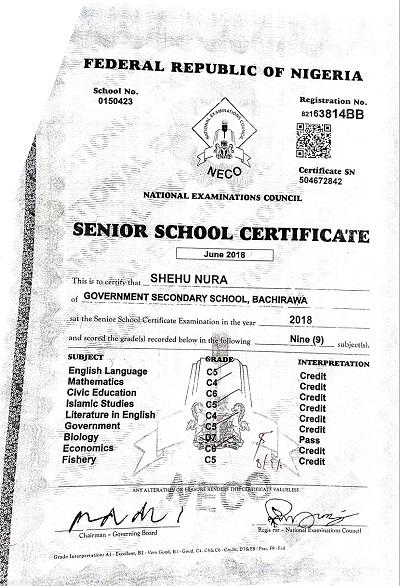 FEDERAL REPUBLIC OF NIGERIA
School No.
0150423
Registration No.
82163814BB
NATIONAL EXAMINATIONS COUNCIL
NECO
Certificate SN
504672842
NATIONAL EXAMINATIONS COUNCIL
SENIOR SCHOOL CERTIFICATE
June 2018
This is to certify that SHEHU NURA
of GOVERNMENT SECONDARY SCHOOL, BACHIRAWA
sat the Senior School Certificate Examination in the year 2018
and scored the grade(s) recorded below in the following Nine (9) subject(s).
SUBJECT GRADE INTERPRETATION
English Language C5 Credit
Mathematics C4 Credit
Civic Education C6 Credit
Islamic Studies C5 Credit
Literature in English C4 Credit
Government C5 Credit
Biology D7 Pass
Economics C6 Credit
Fishery C5 Credit
NECO
ANY ALTERATION OR ERASURE RENDERS THE CERTIFICATE VALUELESS
Chairman - Governing Board
Registrar - National Examinations Council
Grade Interpretation: A1 - Excellent, B2 - Very Good, B3 - Good, C4, C5 & C6 - Credit, D7 & E8 - Pass, F9 - Fail